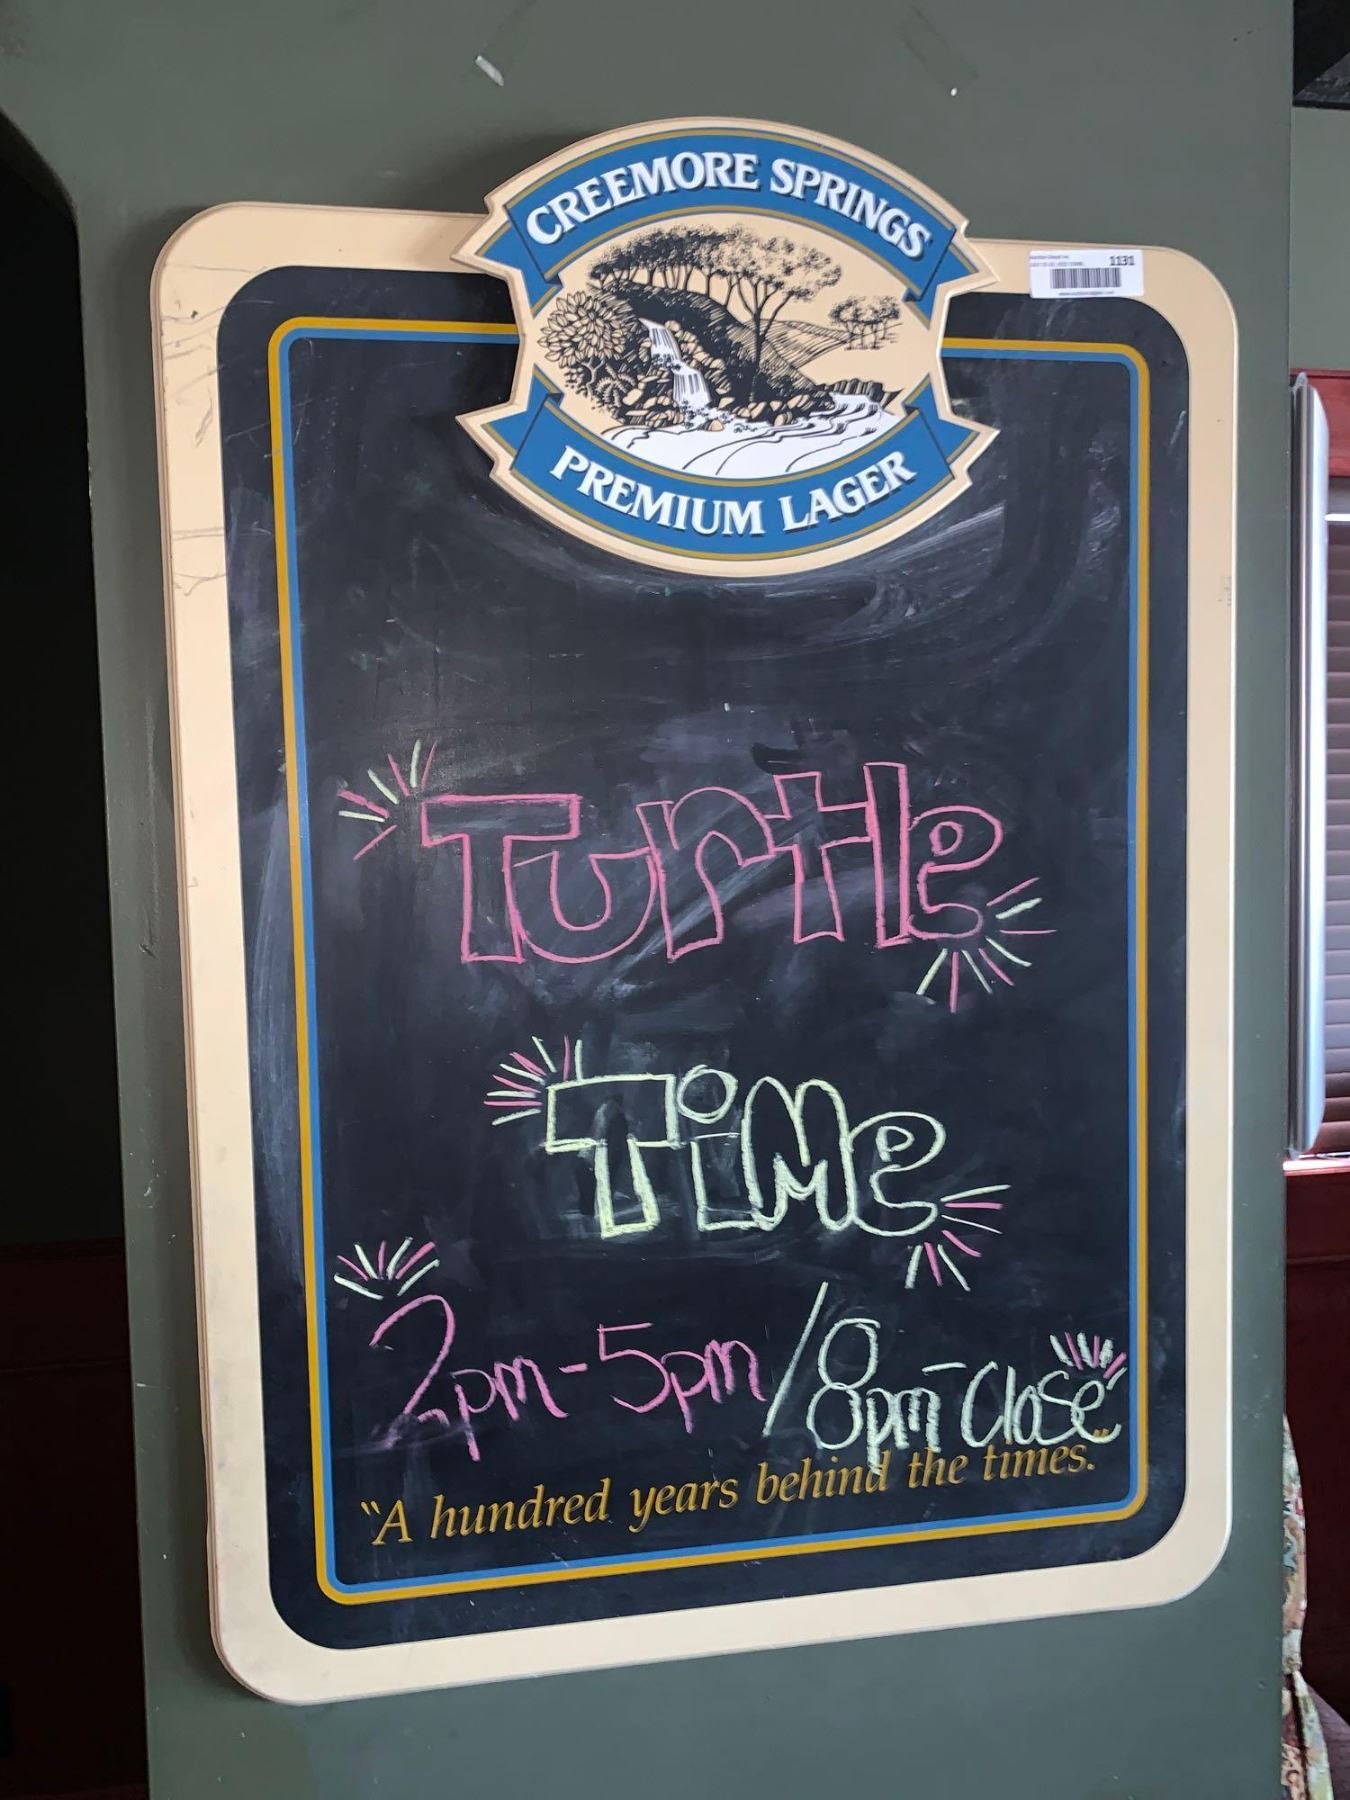 CREEMORE SPRINGS
1131
PREMIUM LAGER
Turtle
TiMe
2pm-5pm/8pm-Close
"A hundred years behind the times."